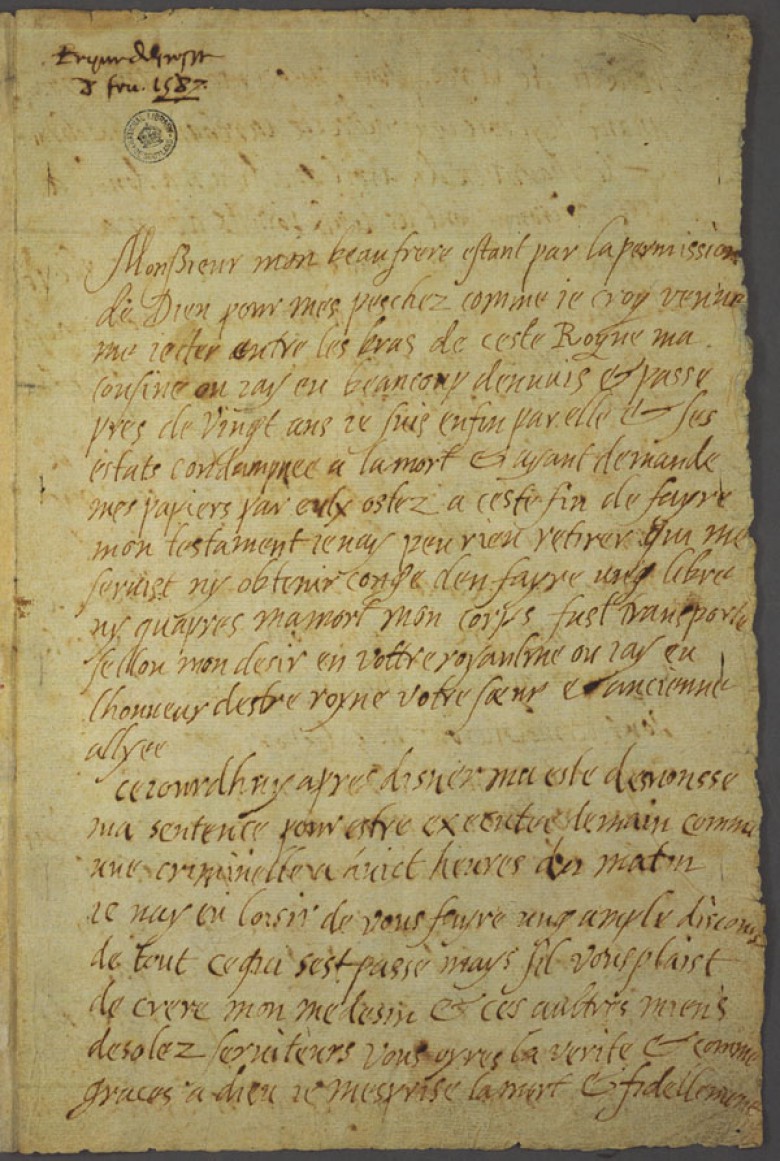 8 feu. 1587.
NATIONAL LIBRARY OF SCOTLAND
Monssieur mon beaufrere estant par la permission
de Dieu pour mes peschez comme ie croy venue
me iecter entre les bras de ceste Royne ma
cousine ou iay eu beaucoup dennuis & passe
pres de vingt ans ie suis enfin par elle & ses
estats condampnee a la mort & ayant demande
mes papiers par eulx ostez a ceste fin de fayre
mon testament ie nay peu rien retirer qui me
seruist ny obtenir conge den fayre ung libre
ny quapres ma mort mon corps fust transporte
sellon mon desir en votre royaulme ou iay eu
lhonneur destre royne votre sœur & ancienne
allyee
ceiourdhuy apres disner ma este desnonsse
ma sentence pour estre executee demain comme
une criminelle a huict heures du matin
ie nay eu loisir de vous fayre ung ample discours
de tout ce qui sest passe mays sil vous plaist
de crere mon medesin & ces aultres miens
desolez seruiteurs vous oyres la verite & comme
graces a dieu ie mesprise la mort & fidellement